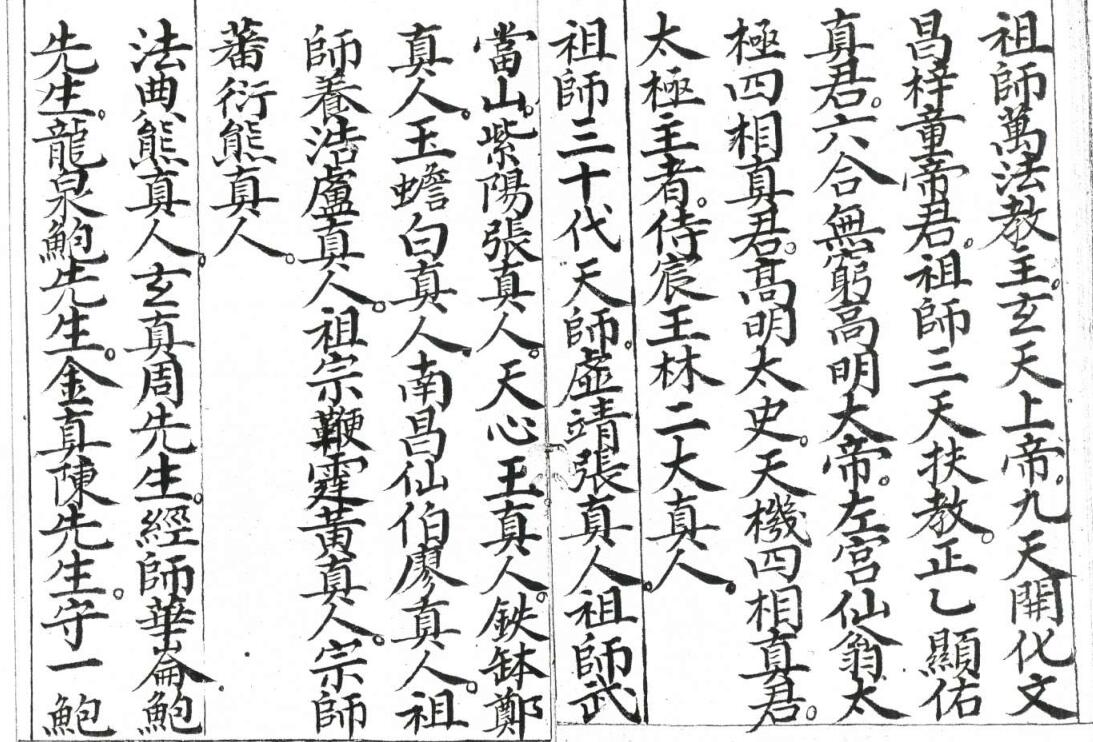 祖師萬法教主。玄天上帝。九天開化文
昌梓童帝君。祖師三天扶教。正乙顯佑
真君。六合無窮高明大帝。左宮仙翁太
極四相真君。高明太史。天機四相真君。
太極主者。侍宸王林二大真人。
祖師三十代天師。虛靖張真人。祖師武
當山。紫陽張真人。天心王真人。鉄缽鄭
真人。玉蟾白真人。南昌仙伯廖真人。祖
師養浩盧真人。祖宗鞭霆黃真人。宗師
蕃衍熊真人。
法典熊真人。玄真周先生。經師華崙鮑
先生。龍泉鮑先生。金真陳先生。守一鮑